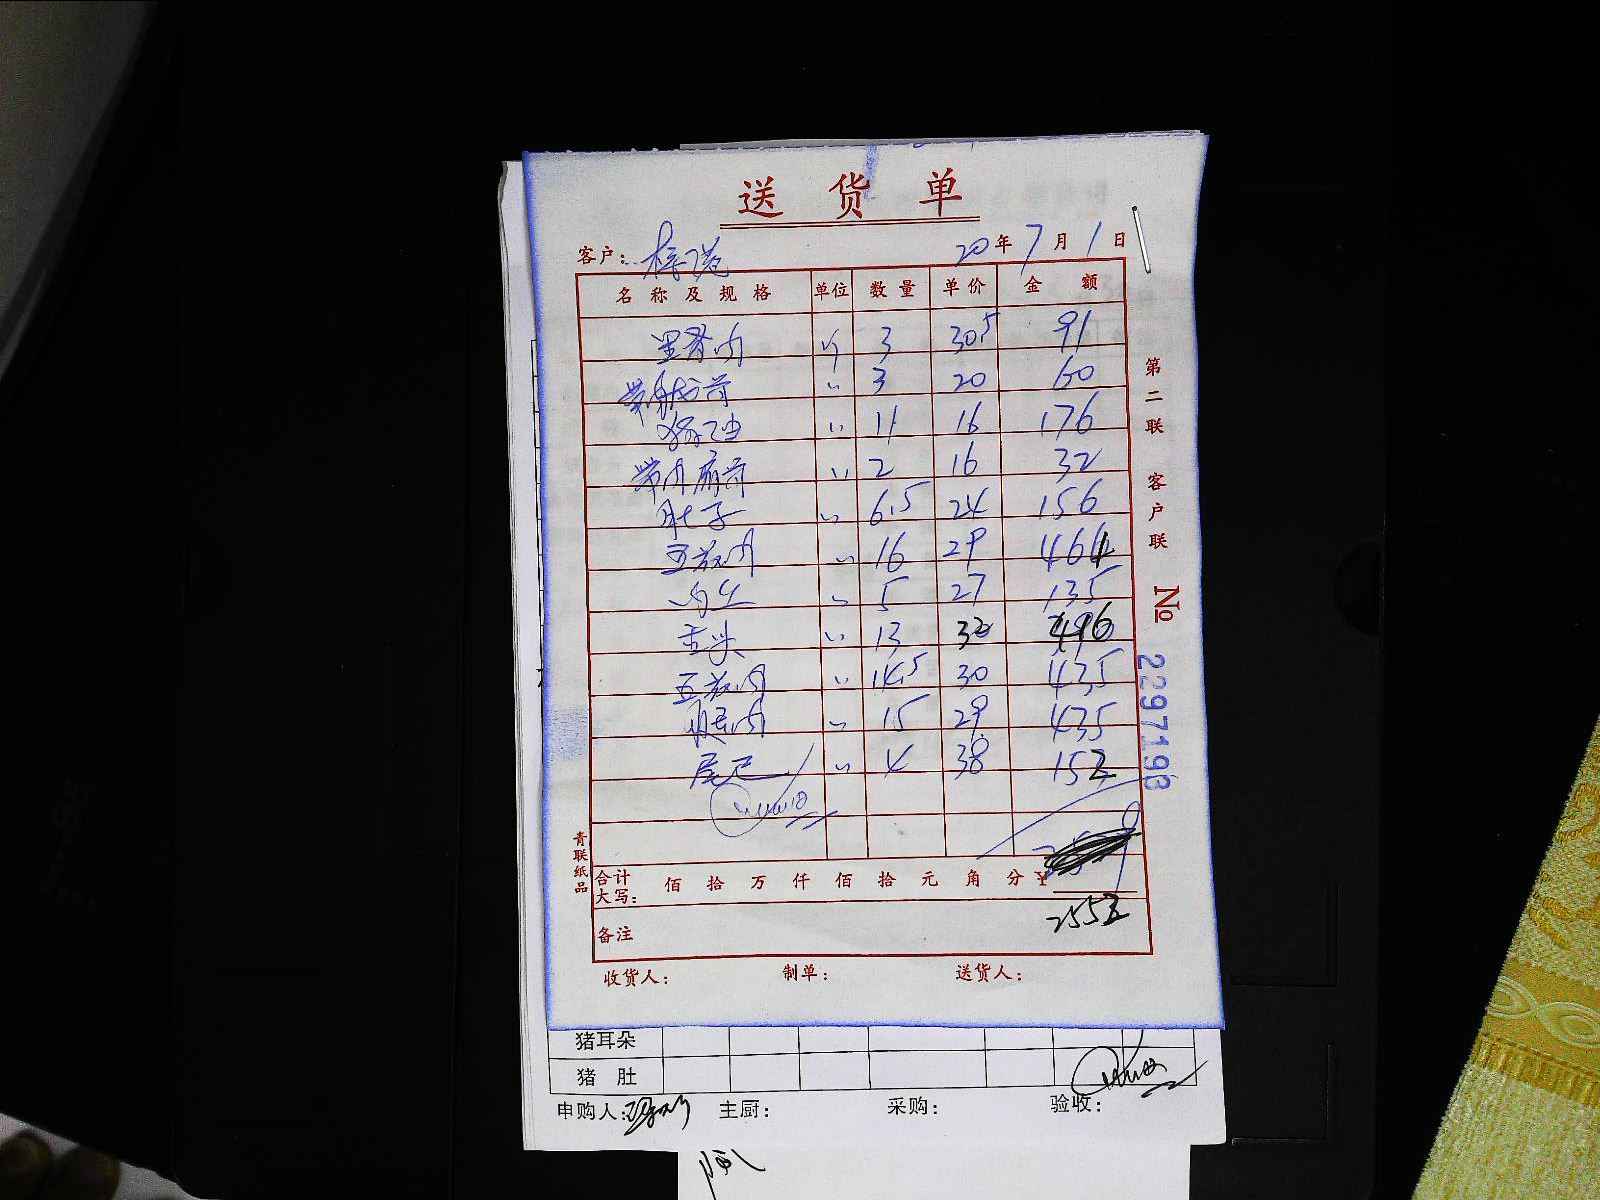 送货单
客户: 20年7月1日
名称及规格 单位 数量 单价 金额
里脊肉 斤 3 30.5 91
" 3 20 60
" 11 16 176
带肉扇骨 " 2 16 32
肚子 " 6.5 24 156
五花肉 " 16 29 464
" 5 27 135
" 13 32 416
五花肉 " 14.5 30 435
腿肉 " 15 29 435
尾巴 " 4 38 152
合计大写: 佰拾万仟佰拾元角分¥
2552
备注
收货人: 制单: 送货人:
第二联 客户联
№ 2297198
青联纸品
猪耳朵
猪肚
申购人: 主厨: 采购: 验收: